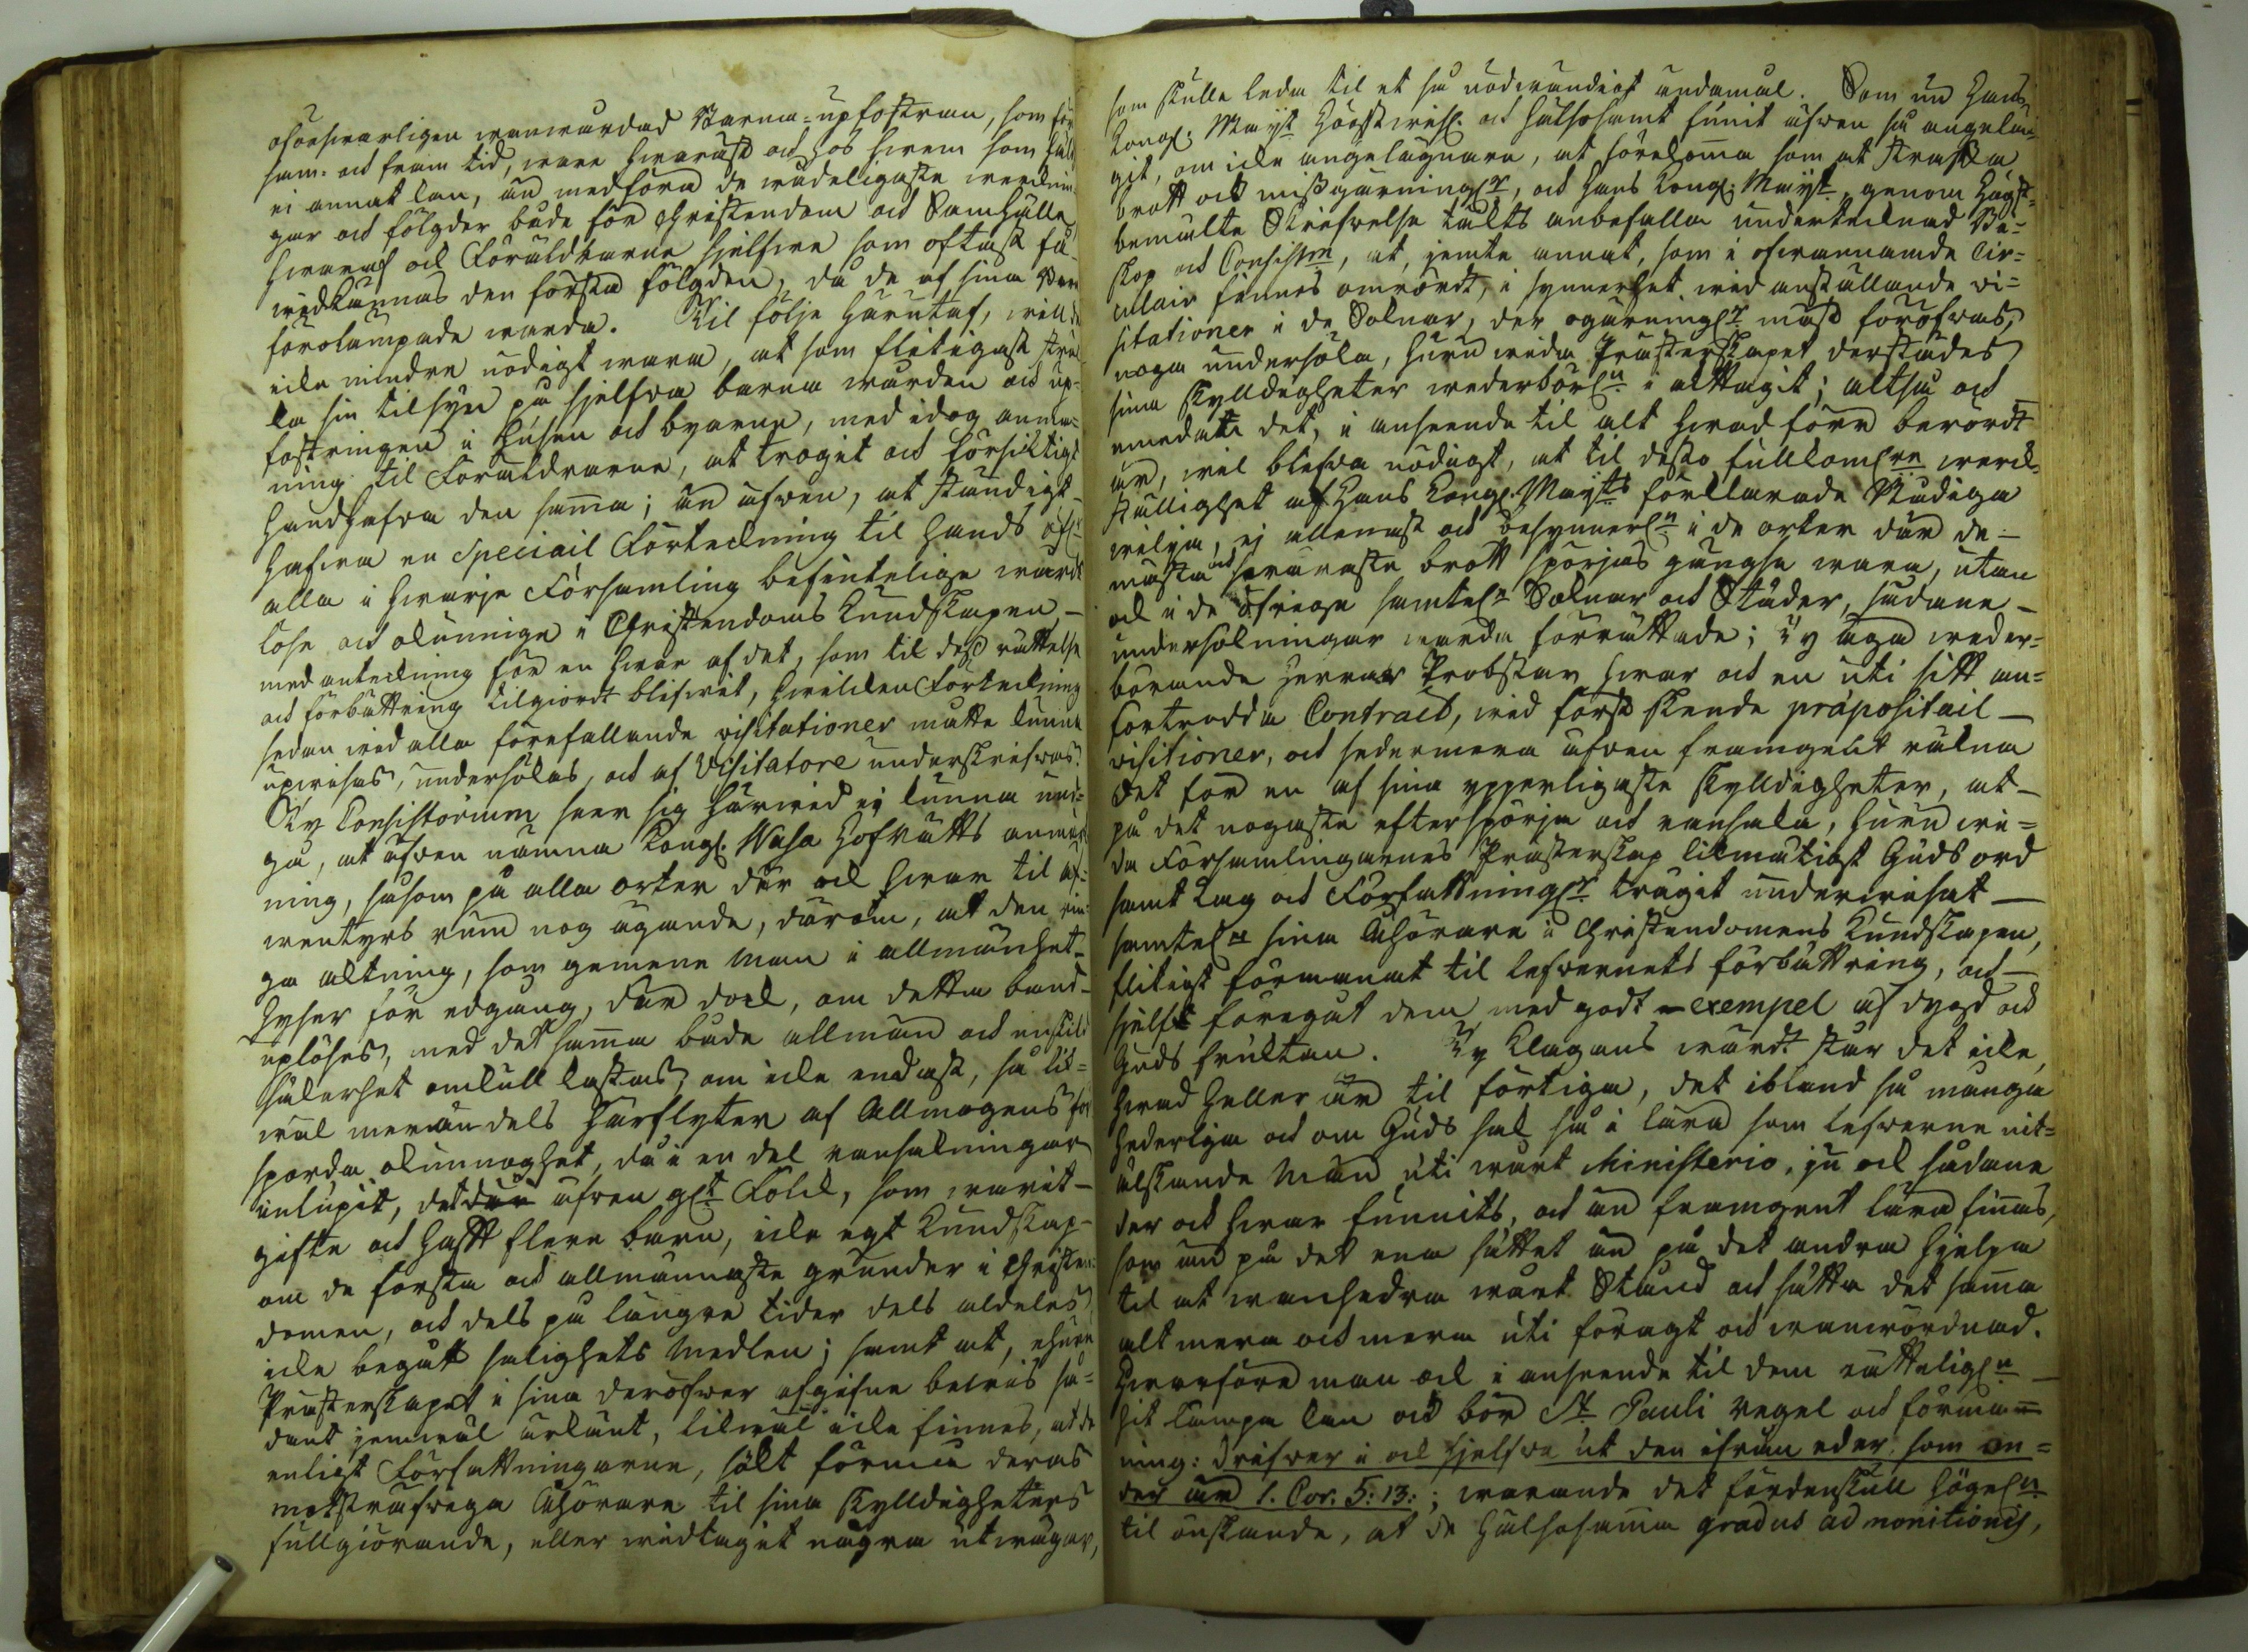 oförswarligen wanwårdad Barna-upfostran, som för
sam- och fram tid, warer hwarast och hos hwem som hälst
ei annat kan, än medföra de wådeligaste werknin-
gar och följder både för Christendom och Samhälle
hwaraf ock Föräldrarne sjelfwe som oftast få
widkännas den första följden, då de af sina Barn
förolämpade warda. Til följe häraf, will de
icke mindre nödigt wara, at som flitigast stäl-
la sin tilsyn på sjelfwa barna wården och up-
fostringen i Husen och byarne, med idog anma-
ning til Föräldrarne, at troget och försiktigt
handhafwa den samma; än äfwen, at ständigt
hafwa en Speciail Förteckning til hands öfwer
alla i hwarje Församling befintelige wårds-
löse och okunnige i Christendoms kundskapen
med anteckning för en hwar af det, som til dess rättelse
och förbättring tilgiordt blifwit, hwilcken Förteckning
sedan wid alla förefallande visitationer måtte kunna
upwisas, undersökas, och af Visitatore underskrifwas.
Ty Consistorium seer sig härwid ej kunna und-
gå, at äfwen nämna Kongl. Wasa Hofrätts anmärk-
ning, såsom på alla orter där ock hwar til äf-
wentyrs rum nog ägande, därom, at den rin-
ga aktning, som gemene man i allmänhet
hyser för edgång, där dock, om detta band
uplöses, med det samma både allmän och enskild
säkerhet omkull kastas, om icke endast, så lik-
wäl merändels härflyter af Allmogens för-
sporda okunnoghet, då i en del ransakningar
inlupit, det där äfwen gl:t Folck, som warit
gifte och haft flere barn, icke egt kundskap
om de första och allmännaste grunder i Christen-
domen, och dels på längre tider dels aldeles
icke begått salighets medlen; samt at, ehuru
Prästerskapet i sina deröfwer afgifne bewis så-
dant jemwäl erkänt, likwäl icke finnes, at de
enligt Författningarne, sökt förmå deras
motsträfwiga Åhörare til sina skylldigheters
fullgiörande, eller widtagit några utwägar,
som skulle leda til et så nödwändigt ändamål. Som nu Hans
Kongl. Maij:t Högstwisl. och hälsosamt funnit äfwen så angeläg-
git, om icke angelägnare, at förekomma som at straffa
brott och missgärning:r, och Hans Kongl. Maij:t genom Högst-
bemälte Skrifwelse täckts anbefalla underteknad Bi-
skop och Consist:m, at, jemte annat, som i ofwannämde Cir-
culair finnes omrördt, i synnerhet wid anställande vi-
sitationer i de Soknar, der ogärning:r mäst föröfwas,
noga undersöka, huru wida Prästerskapet derstädes
sina skylldigheter wederbörl:n i akttagit; altså och
emedan det, i anseende til alt hwad förr berördt
är, wil blifwa nödigt, at til desto fullkoml:re werck-
ställighet af Hans Kongl. Maij:ts förklarade Nådiga
wilja, ej allenast och besynnerl:n i de orter där de
mästa och swåraste brott spörjas gängse wara, utan
ock i de öfriga samtel:n Soknar och Städer, sådane
undersökningar warda förrättade; Ty äga weder-
börande Herrar Probstar hwar och en uti sitt an-
förtrodda Contract, wid först skeende præpositail
visitioner, och sedermera äfwen framgent räkna
det för en af sina ypperligaste skylldigheter, at
på det nogaste efterspörja och ransaka, huru wi-
da Församlingarnes Prästerskap likmätigt Guds ord
samt Lag och Författning:r trägit underwisat
samtel:n sina Åhörare i Christendomens kundskapen,
flitigt förmanat til lefwernets förbättring, och
sjelft föregåt dem med godt exempel af dygd och
Guds fruktan. Ty klagans wärdt står det icke,
hwad heller är til förtiga, det ibland så många
hederliga och om Guds sak så i lära som lefwerne nit-
älskande Män uti wårt Ministerio, ju ock sådane
der och hwar funnits, och än framgent lära finnas,
som än på det ena sättet än på det andra hjelpa
til at wanhedra wårt Stånd och sätta det samma
alt mera och mera uti föragt och wanwördnad.
Hwarföre man ock i anseende til dem rätteligen
hit lämpa kan och bör S:t Pauli regel och förma-
ning: drifwer i ock sjelfwe ut den ifrån eder som on-
der är 1. Cor. 5: 13:; warande det fördenskull högel:n
til önskande, at de hälsosamma gradus admonitionis,